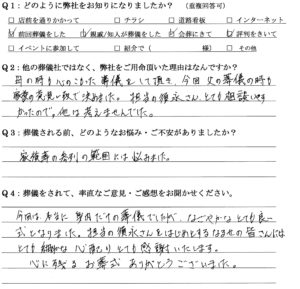 Q1：どのように弊社をお知りになりましたか？（重複回答可）
□店前を通りかかって □チラシ □道路看板 □インターネット
☑前回葬儀をした ☑親戚/知人が葬儀をした ☑会葬にきて ☑評判をきいて
□イベントに参加して □紹介で（ 様） □その他
Q2：他の葬儀社ではなく、弊社をご用命頂いた理由はなんですか？
母の時も心のこもった葬儀をして頂き、今回父の葬儀の時も
家族の意見一致で決めました。担当の徳永さんとても相談しやす
かったので。他は考えませんでした。
Q3：葬儀される前、どのようなお悩み・ご不安がありましたか？
家族葬の参列の範囲とは悩みました。
Q4：葬儀をされて、率直なご意見・ご感想をお聞かせください。
今回は本当に身内だけの葬儀でしたが、なごやかなとても良い
式となりました。担当の徳永さんをはじめとするなませの皆さんには
とても細やかな心配りとても感謝いたします。
心に残るお葬式ありがとうございました。